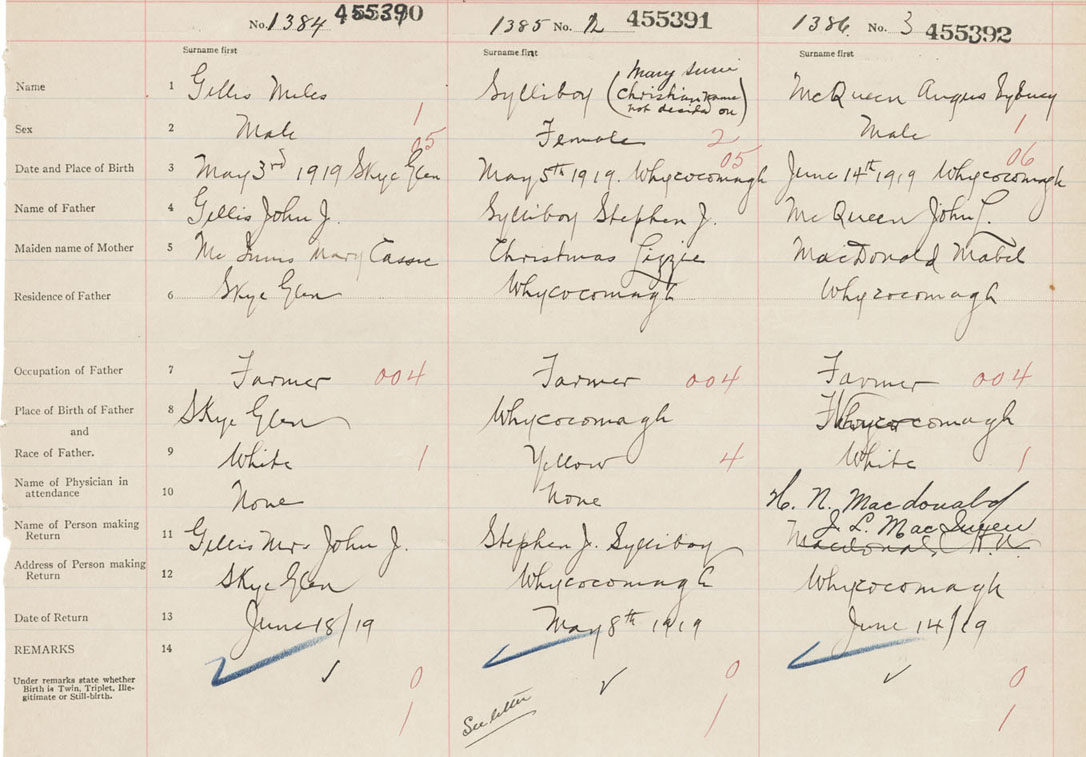 No. 1384 455390 1385 No. 2 455391 1386 No. 3 455392
Surname first Surname first Surname first
Name 1 Gillis Miles Sylliboy (Mary Susie Christian name not decided on) McQueen Angus Sydney
Sex 2 Male 1 Female 2 Male 1
05 05 06
Date and Place of Birth 3 May 3rd 1919 Skye Glen May 5th 1919. Whycocomagh June 14th 1919 Whycocomagh
Name of Father 4 Gillis John J. Sylliboy Stephen J. McQueen John L.
Maiden name of Mother 5 Mc Innis Mary Cassie Christmas Lizzie MacDonald Mabel
Residence of Father 6 Skye Glen Whycocomagh Whycocomagh
Occupation of Father 7 Farmer 004 Farmer 004 Farmer 004
Place of Birth of Father 8 Skye Glen Whycocomagh Whycocomagh
and
Race of Father. 9 White 1 Yellow 4 White 1
Name of Physician in
attendance 10 None None H. N. Macdonald
Name of Person making
Return 11 Gillis Mrs John J. Stephen J. Sylliboy J. L. MacQueen Macdonald H. N.
Address of Person making
Return 12 Skye Glen Whycocomagh Whycocomagh
Date of Return 13 June 18/19 May 8th 1919 June 14/19
REMARKS 14
Under remarks state whether
Birth is Twin, Triplet, Ille-
gitimate or Still-birth.
0 0 0
See letter
1 1 1